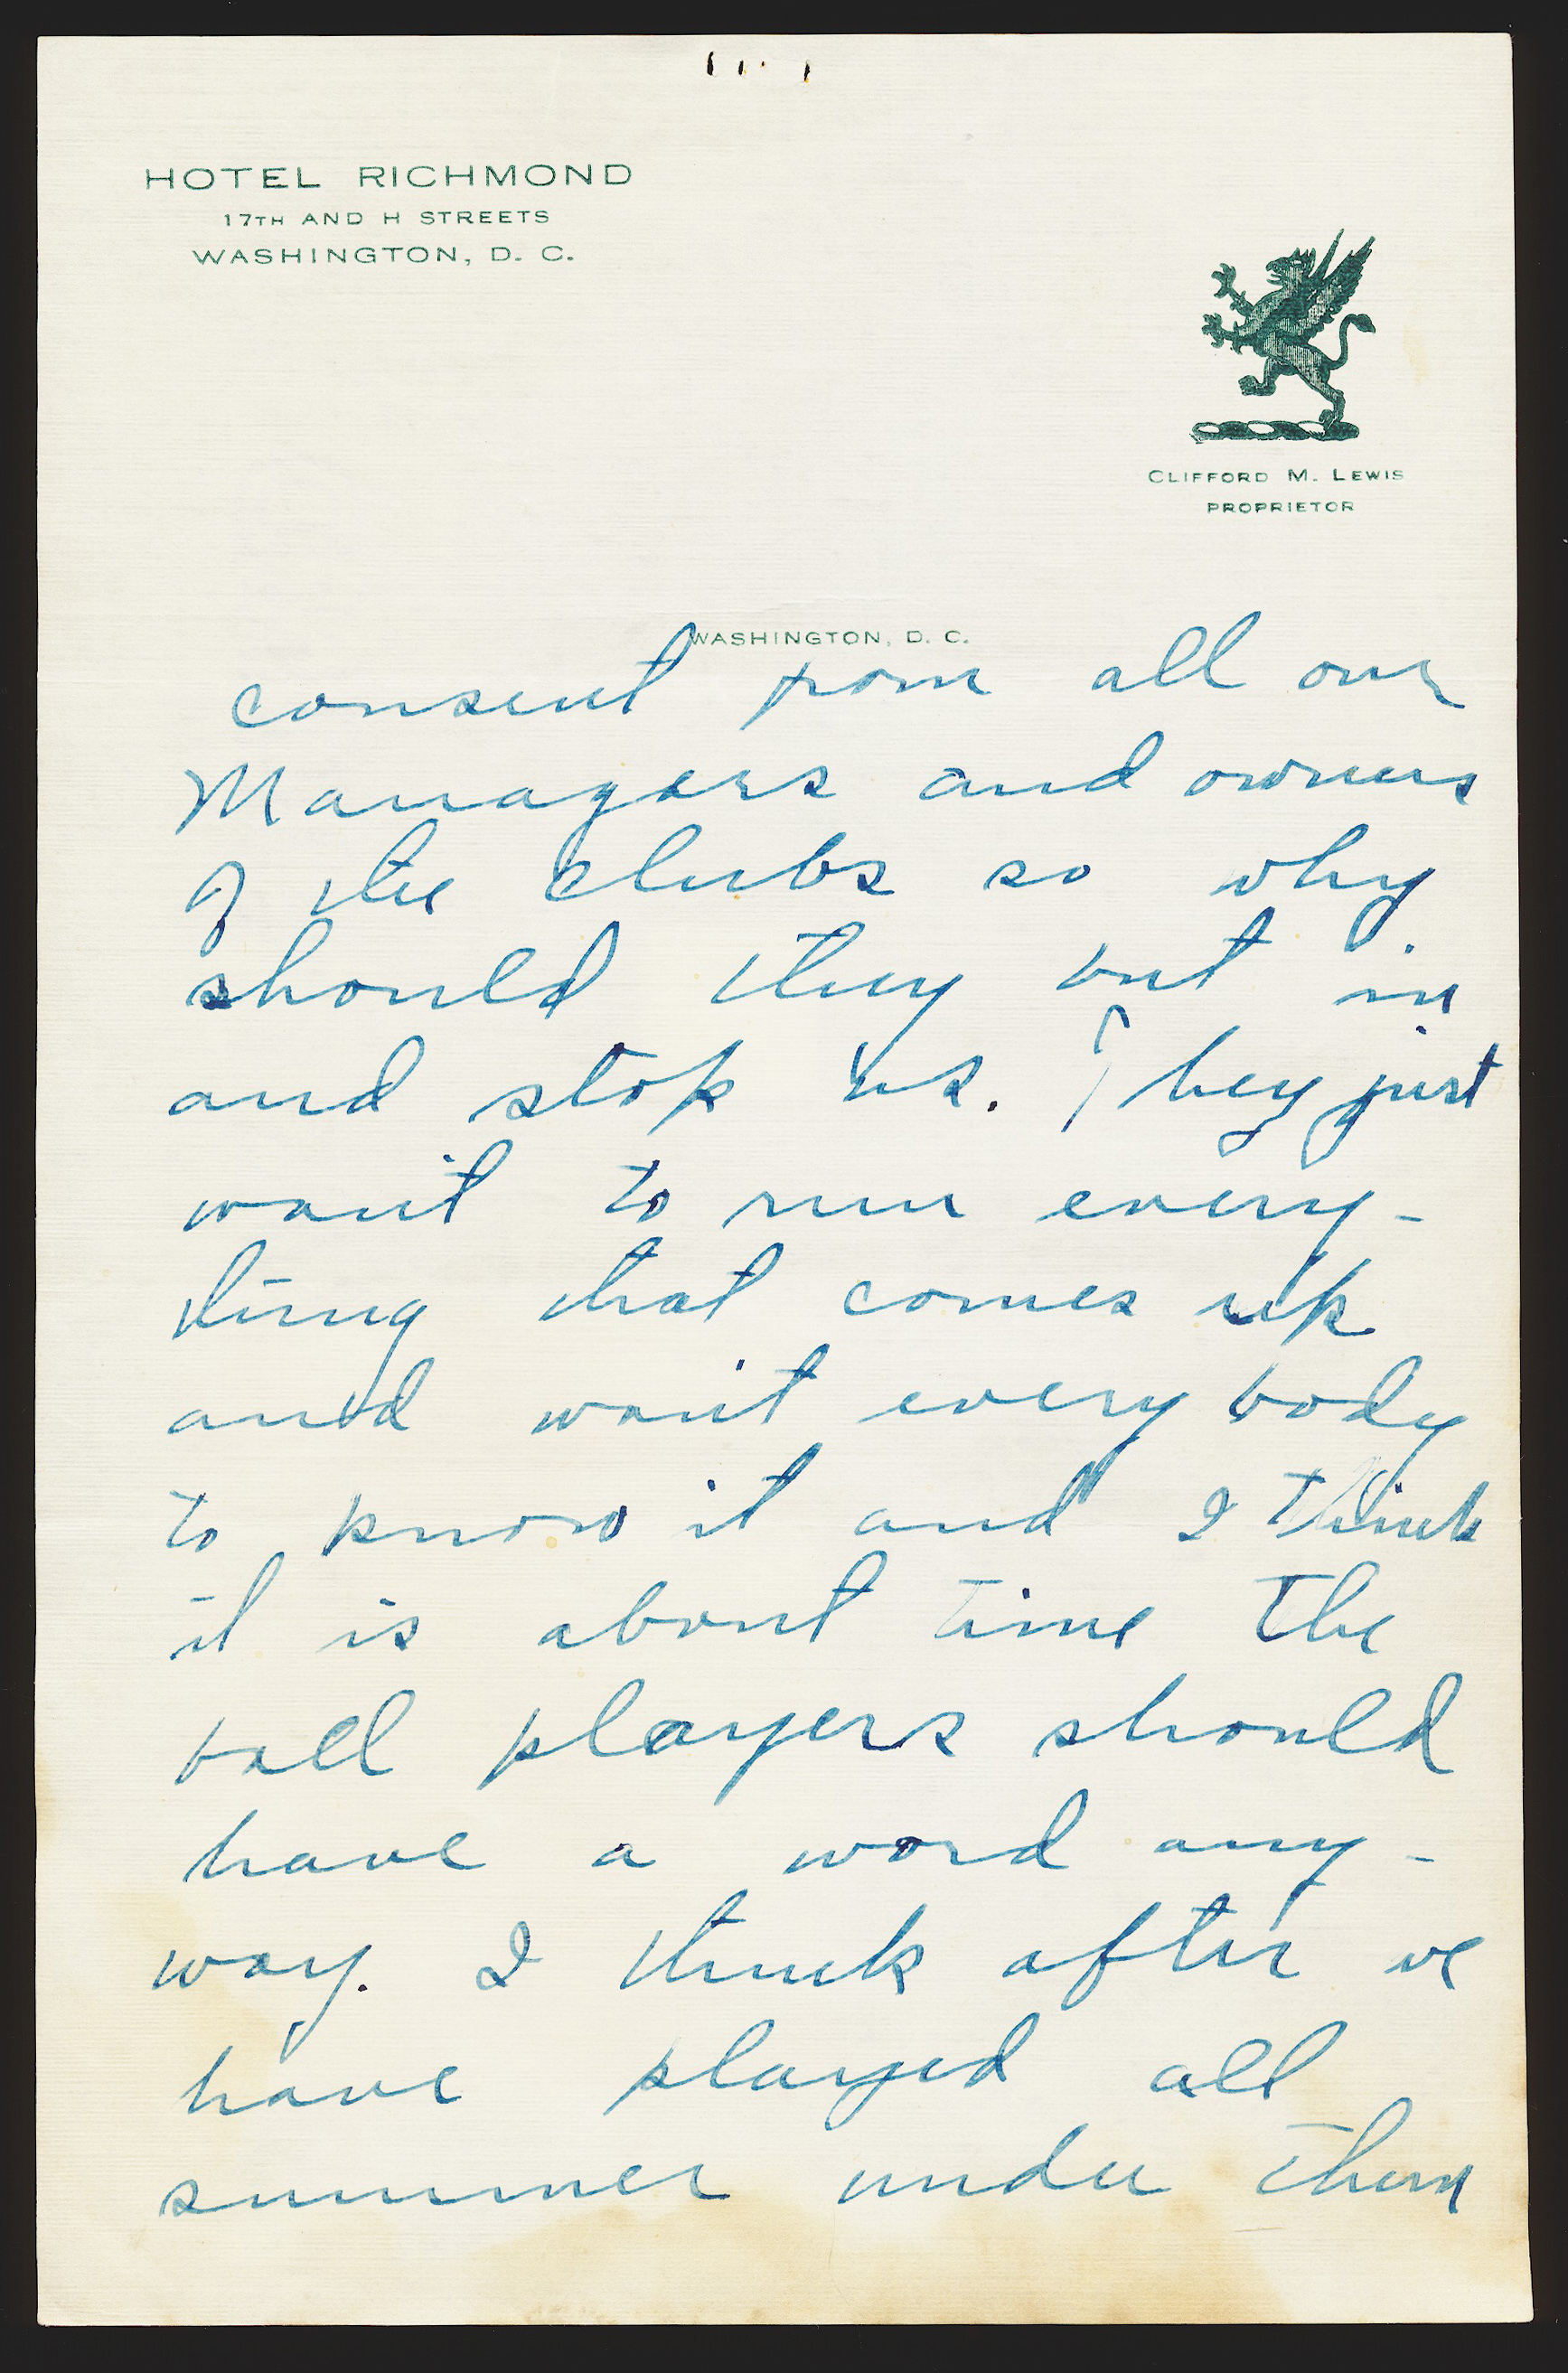 HOTEL RICHMOND
17TH AND H STREETS
WASHINGTON, D. C.
CLIFFORD M. LEWIS
PROPRIETOR
WASHINGTON, D. C.
consent from all our
Managers and owners
of the clubs so why
should they but in
and stop us. They just
want to run every-
thing that comes up
and want every body
to know it and I think
it is about time the
ball players should
have a word any-
way. I think after we
have played all
summer under them